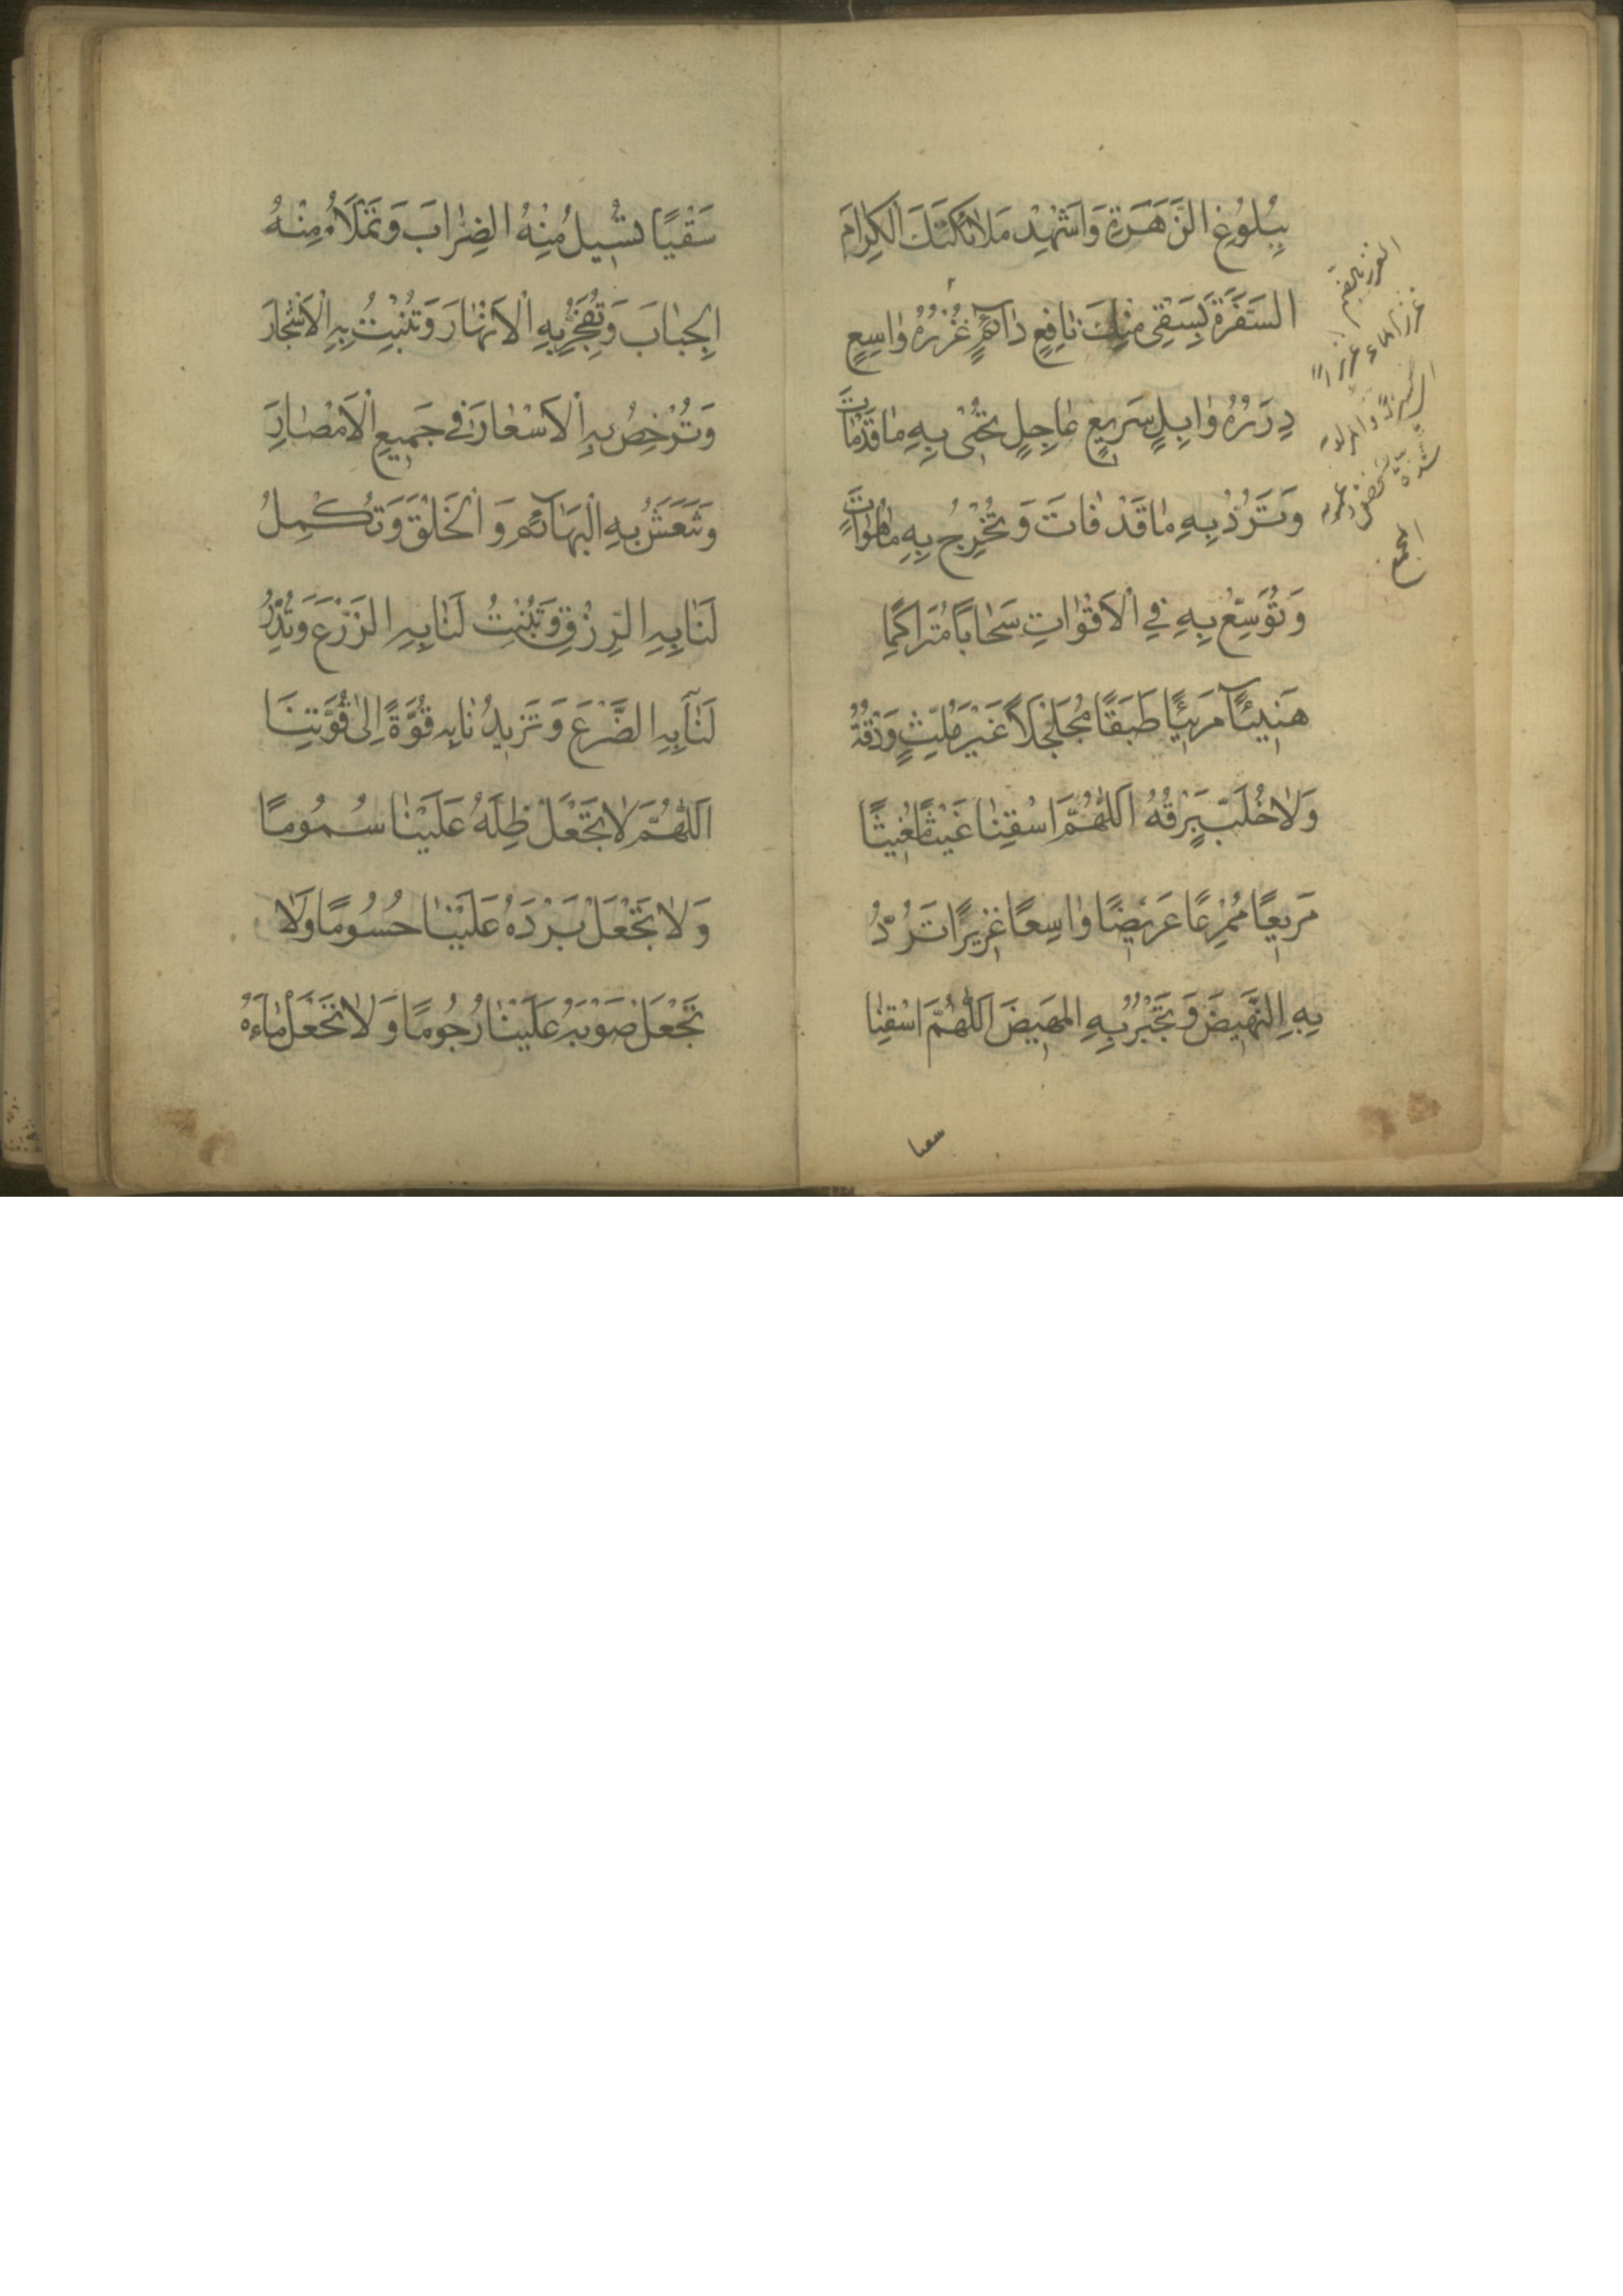 بِبُلُوُغِ الزَّهَرَةِ وَاَشْهِدْ مَلائِكَتَكَ الْكِرامَ
السَّفَرَةَ بِسَقْىٍ مِنْكَ نافِعٍ دآئِمٍ غُزْرُهُ واسِعٍ
دِرَرُهُ وابِلٍ سَريعٍ عاجِلٍ تُحْيى بِهِ ما قَدْ ماتَ
وَتَرُدُّ بِهِ ما قَدْ فاتَ وَتُخْرِجُ بِهِ ما هُوَ اتٍ
وَتُوَسِّعُ بِهِ فِي الْاَقْواتِ سَحاباً مُتَراكِمًا
هَنيئًا مَريئًا طَبَقًا مُجَلْجَلاً غَيْرَ مُلِثٍّ وَدْقُهُ
وَلا خُلَّبٍ بَرْقُهُ اَللّهُمَّ اسْقِنا غَيْثًا مُغيثًا
مَريعًا مُمْرِعًا عَريضًا واسِعًا غَزيرًا تَرُدُّ
بِهِ النَّهيضَ وَتَجْبُرُ بِهِ المَهيضَ اَللّهُمَّ اسْقِنا
سقيا
سَقْيًا تُسيلُ مِنْهُ الضِّرابَ وَتَمْلَأُ مِنْهُ
الْجِبابَ وَتُفَجِّرُ بِهِ الْاَنْهارَ وَتُنْبِتُ بِهِ الْاَشْجارَ
وَتُرْخِصُ بِهِ الْاَسْعارَ في جَميعِ الْاَمْصارِ
وَتَنْعَشُ بِهِ الْبَهآئِمَ وَالْخَلْقَ وَتُكْمِلُ
لَنا بِهِ الرِّزْقِ وَتُنْبِتُ لَنا بِهِ الزَّرْعَ وَتُدِرُّ
لَنا بِهِ الضَّرْعَ وَتَزيدُنا بِه قُوَّةً اِلى قُوَّتِنا
اَللّهُمَّ لا تَجْعَلْ ظِلَّهُ عَلَيْنا سُمُومًا
وَلا تَجْعَلْ بَرْدَهُ عَلَيْنا حُسُومًا وَلا
تَجْعَلْ صَوْبَهُ عَلَيْنا رُجُومًا وَلا تَجْعَلْ ماءَهُ